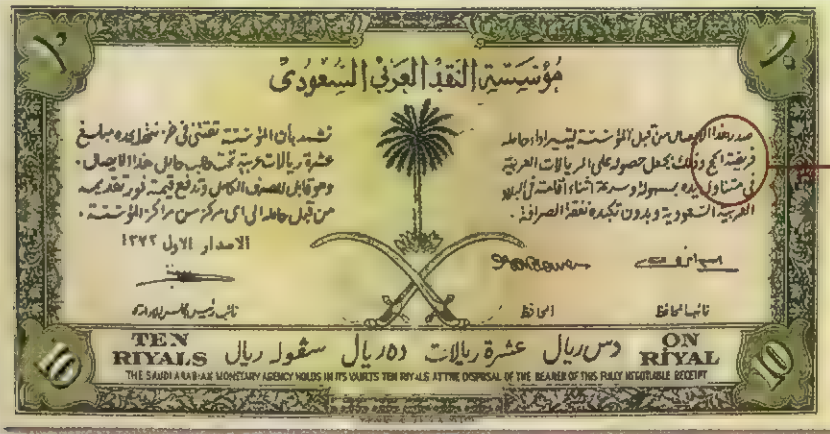 ١٠
١٠
مؤسسة النقد العربي السعودي
صدر هذا الايصال من قبل المؤسسة لتيسير اداء حامله
فريضة الحج وذلك بجعل حصوله على الريالات العربية
في متناول يده بسهولة وسرعة اثناء اقامته في البلاد
العربية السعودية وبدون تكبده نفقة الصرافة .
تشهد بأن المؤسسة تقتني في خزينتها لديه مبلغ
عشرة ريالات عربية تحت طلب حامل هذا الايصال .
وهو قابل للصرف الكامل وتدفع قيمته فور تقديمه
من قبل حامله الى اى مركز من مراكز المؤسسة .
الاصدار الاول ١٣٧٢
نائب المحافظ
المحافظ
نائب رئيس مجلس الادارة
TEN
RIYALS
سڤوله ريال ده ريال عشرة ريالات دس ريال
ON
RIYAL
THE SAUDI ARABIAN MONETARY AGENCY HOLDS IN ITS VAULTS TEN RIYALS AT THE DISPOSAL OF THE BEARER OF THIS FULLY NEGOTIABLE RECEIPT
10
10